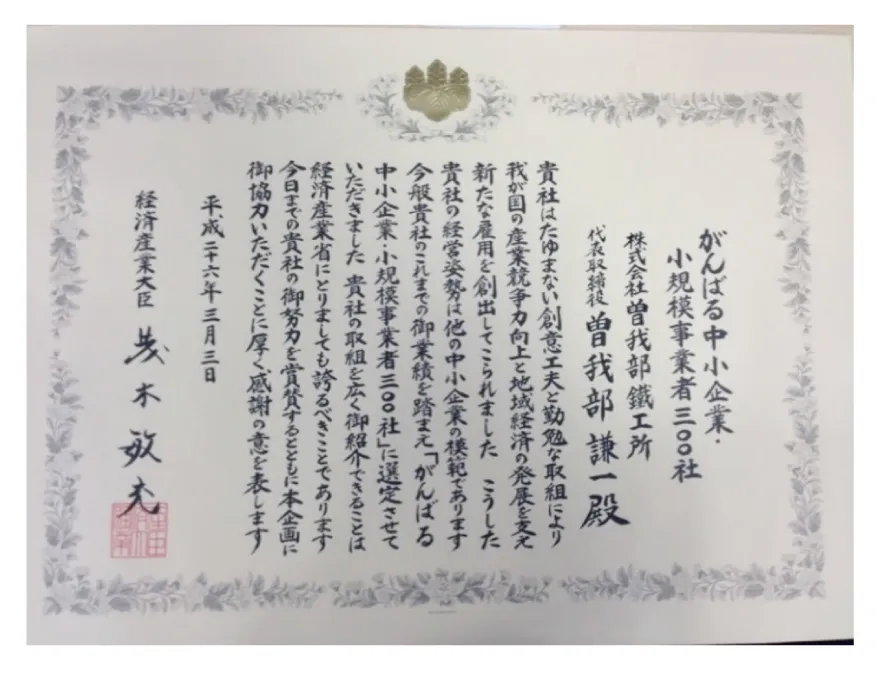 がんばる中小企業・
小規模事業者三〇〇社
株式会社曽我部鐵工所
代表取締役 曽我部謙一殿
貴社はたゆまない創意工夫と勤勉な取組により
我が国の産業競争力向上と地域経済の発展を支え
新たな雇用を創出してこられました こうした
貴社の経営姿勢は他の中小企業の模範であります
今般貴社のこれまでの御業績を踏まえ「がんばる
中小企業・小規模事業者三〇〇社」に選定させて
いただきました 貴社の取組を広く御紹介できることは
経済産業省にとりましても誇るべきことであります
今日までの貴社の御努力を賞賛するとともに本企画に
御協力いただくことに厚く感謝の意を表します
平成二十六年三月三日
経済産業大臣 茂木敏充